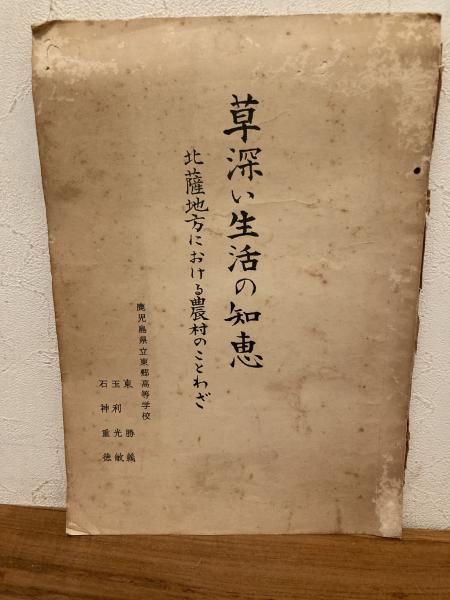 草深い生活の知恵
北薩地方における農村のことわざ
鹿児島県立東郷高等学校
東勝義
玉利光敏
石神重徳